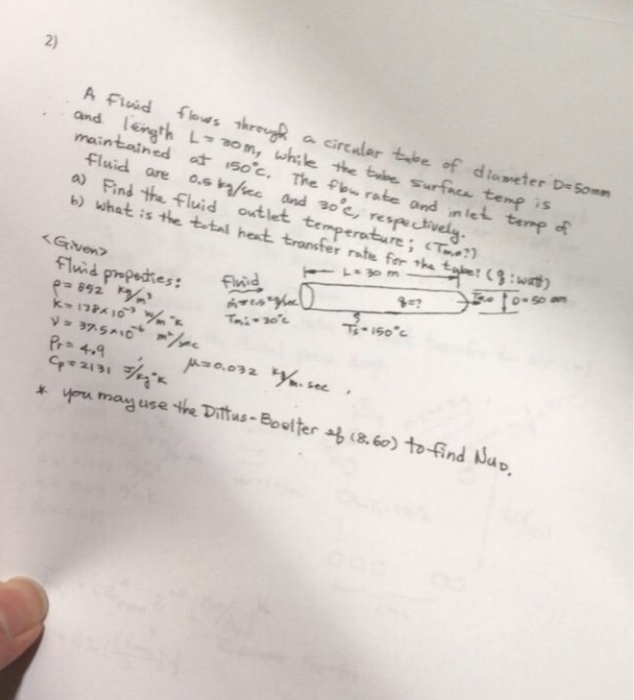 2)
A Fluid flows through a circular tube of diameter D=50mm
and length L=30m, while the tube surface temp is
maintained at 150°C. The flow rate and inlet temp of
fluid are 0.5 kg/sec and 30°C, respectively.
a) Find the fluid outlet temperature; (Tm,o?)
b) what is the total heat transfer rate for the tube? (q: watt)
<Given>
Fluid properties:
ρ= 852 kg/m³
K= 138×10⁻³ w/m·°K
ν= 37.5×10⁻⁶ m²/sec
Pr= 4.9
Cp= 2131 J/kg·°K
μ=0.032 kg/m·sec.
Fluid
ṁ=0.5 kg/sec
Tm,i=30°C
L=30 m
q=?
Tm,o
D=50 mm
Ts=150°C
* you may use the Dittus-Boelter of (8.60) to find NuD.